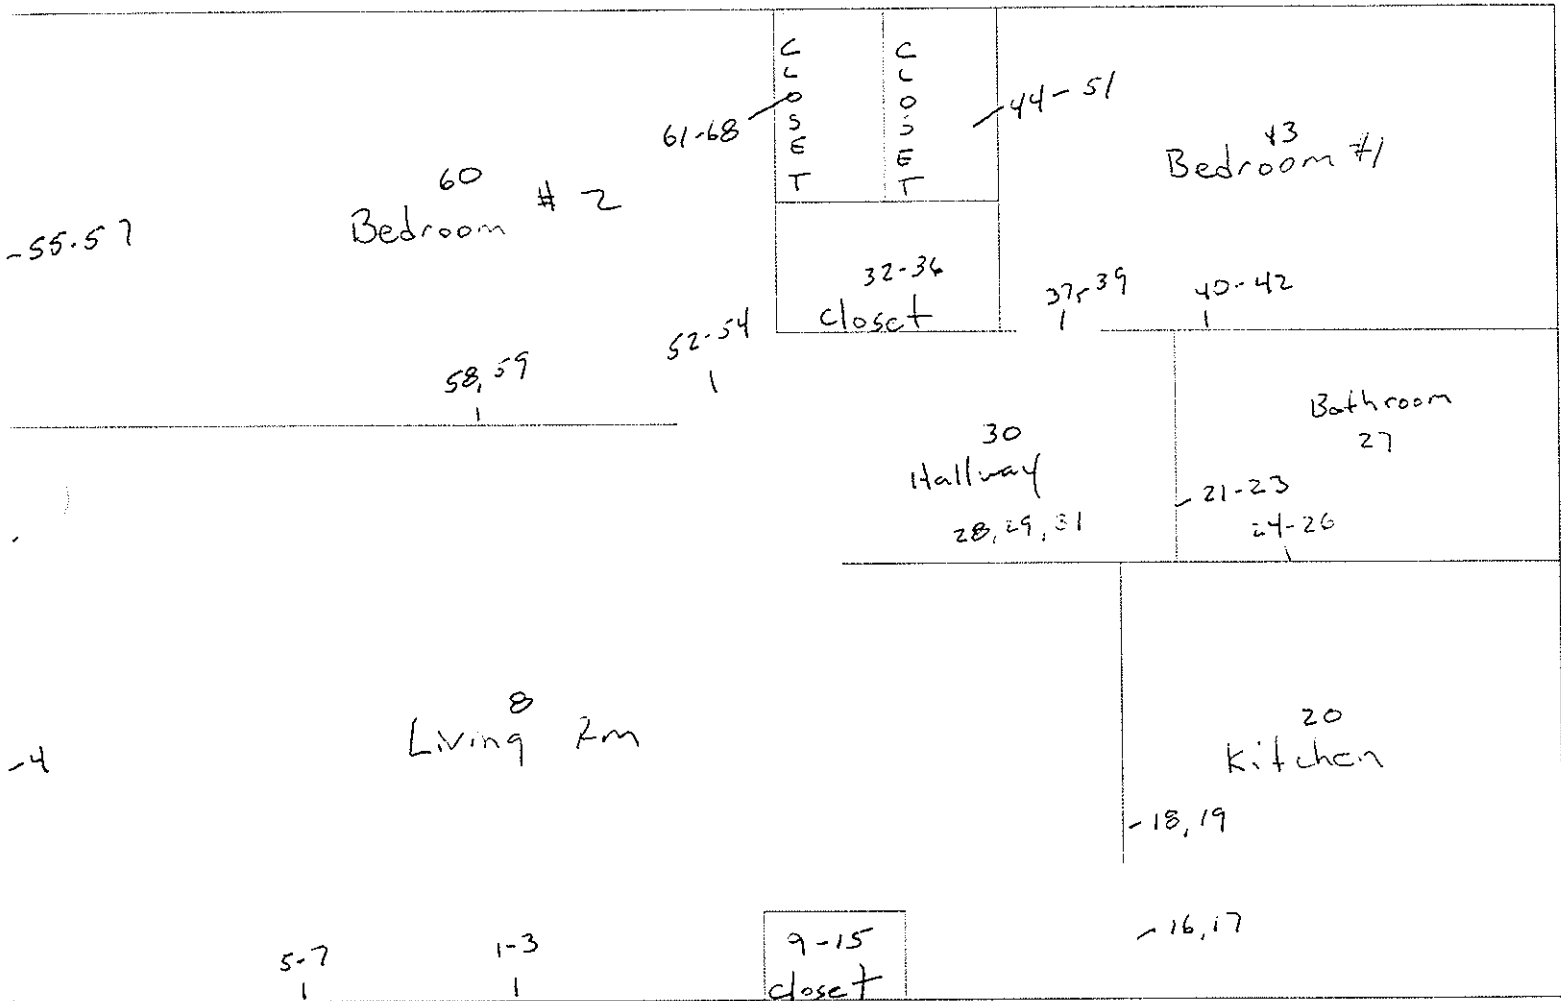 CLOSET
CLOSET
61-68
44-51
43
Bedroom #1
60
Bedroom # 2
-55-57
32-36
closet
37-39
40-42
52-54
58, 59
Bathroom
27
30
Hallway
28, 29, 31
21-23
24-26
8
Living Rm
-4
20
Kitchen
-18, 19
-16, 17
5-7
1-3
9-15
closet